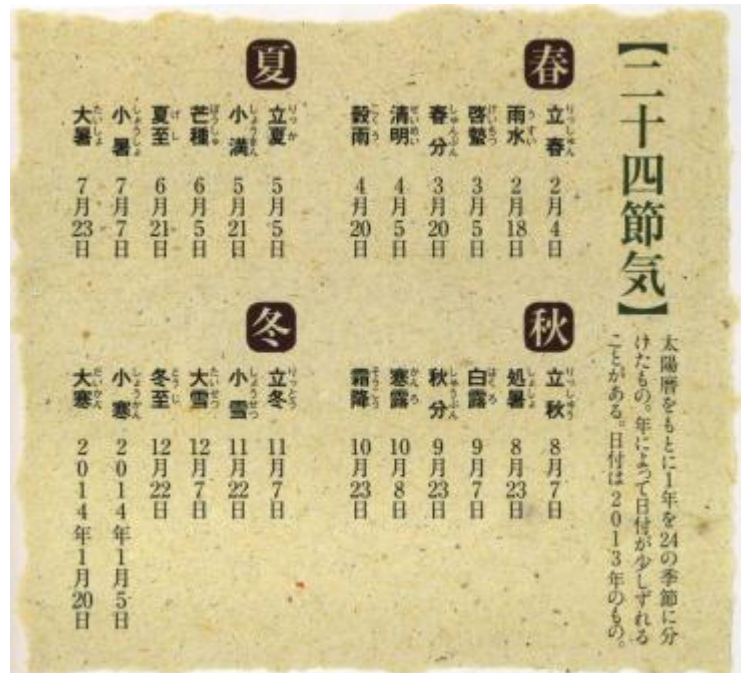 【二十四節気】
太陽暦をもとに1年を24の季節に分
けたもの。年によって日付が少しずれる
ことがある。日付は2013年のもの。
春
立春 りっしゅん 2月4日
雨水 うすい 2月18日
啓蟄 けいちつ 3月5日
春分 しゅんぶん 3月20日
清明 せいめい 4月5日
穀雨 こくう 4月20日
夏
立夏 りっか 5月5日
小満 しょうまん 5月21日
芒種 ぼうしゅ 6月5日
夏至 げし 6月21日
小暑 しょうしょ 7月7日
大暑 たいしょ 7月23日
秋
立秋 りっしゅう 8月7日
処暑 しょしょ 8月23日
白露 はくろ 9月7日
秋分 しゅうぶん 9月23日
寒露 かんろ 10月8日
霜降 そうこう 10月23日
冬
立冬 りっとう 11月7日
小雪 しょうせつ 11月22日
大雪 たいせつ 12月7日
冬至 とうじ 12月22日
小寒 しょうかん 2014年1月5日
大寒 だいかん 2014年1月20日